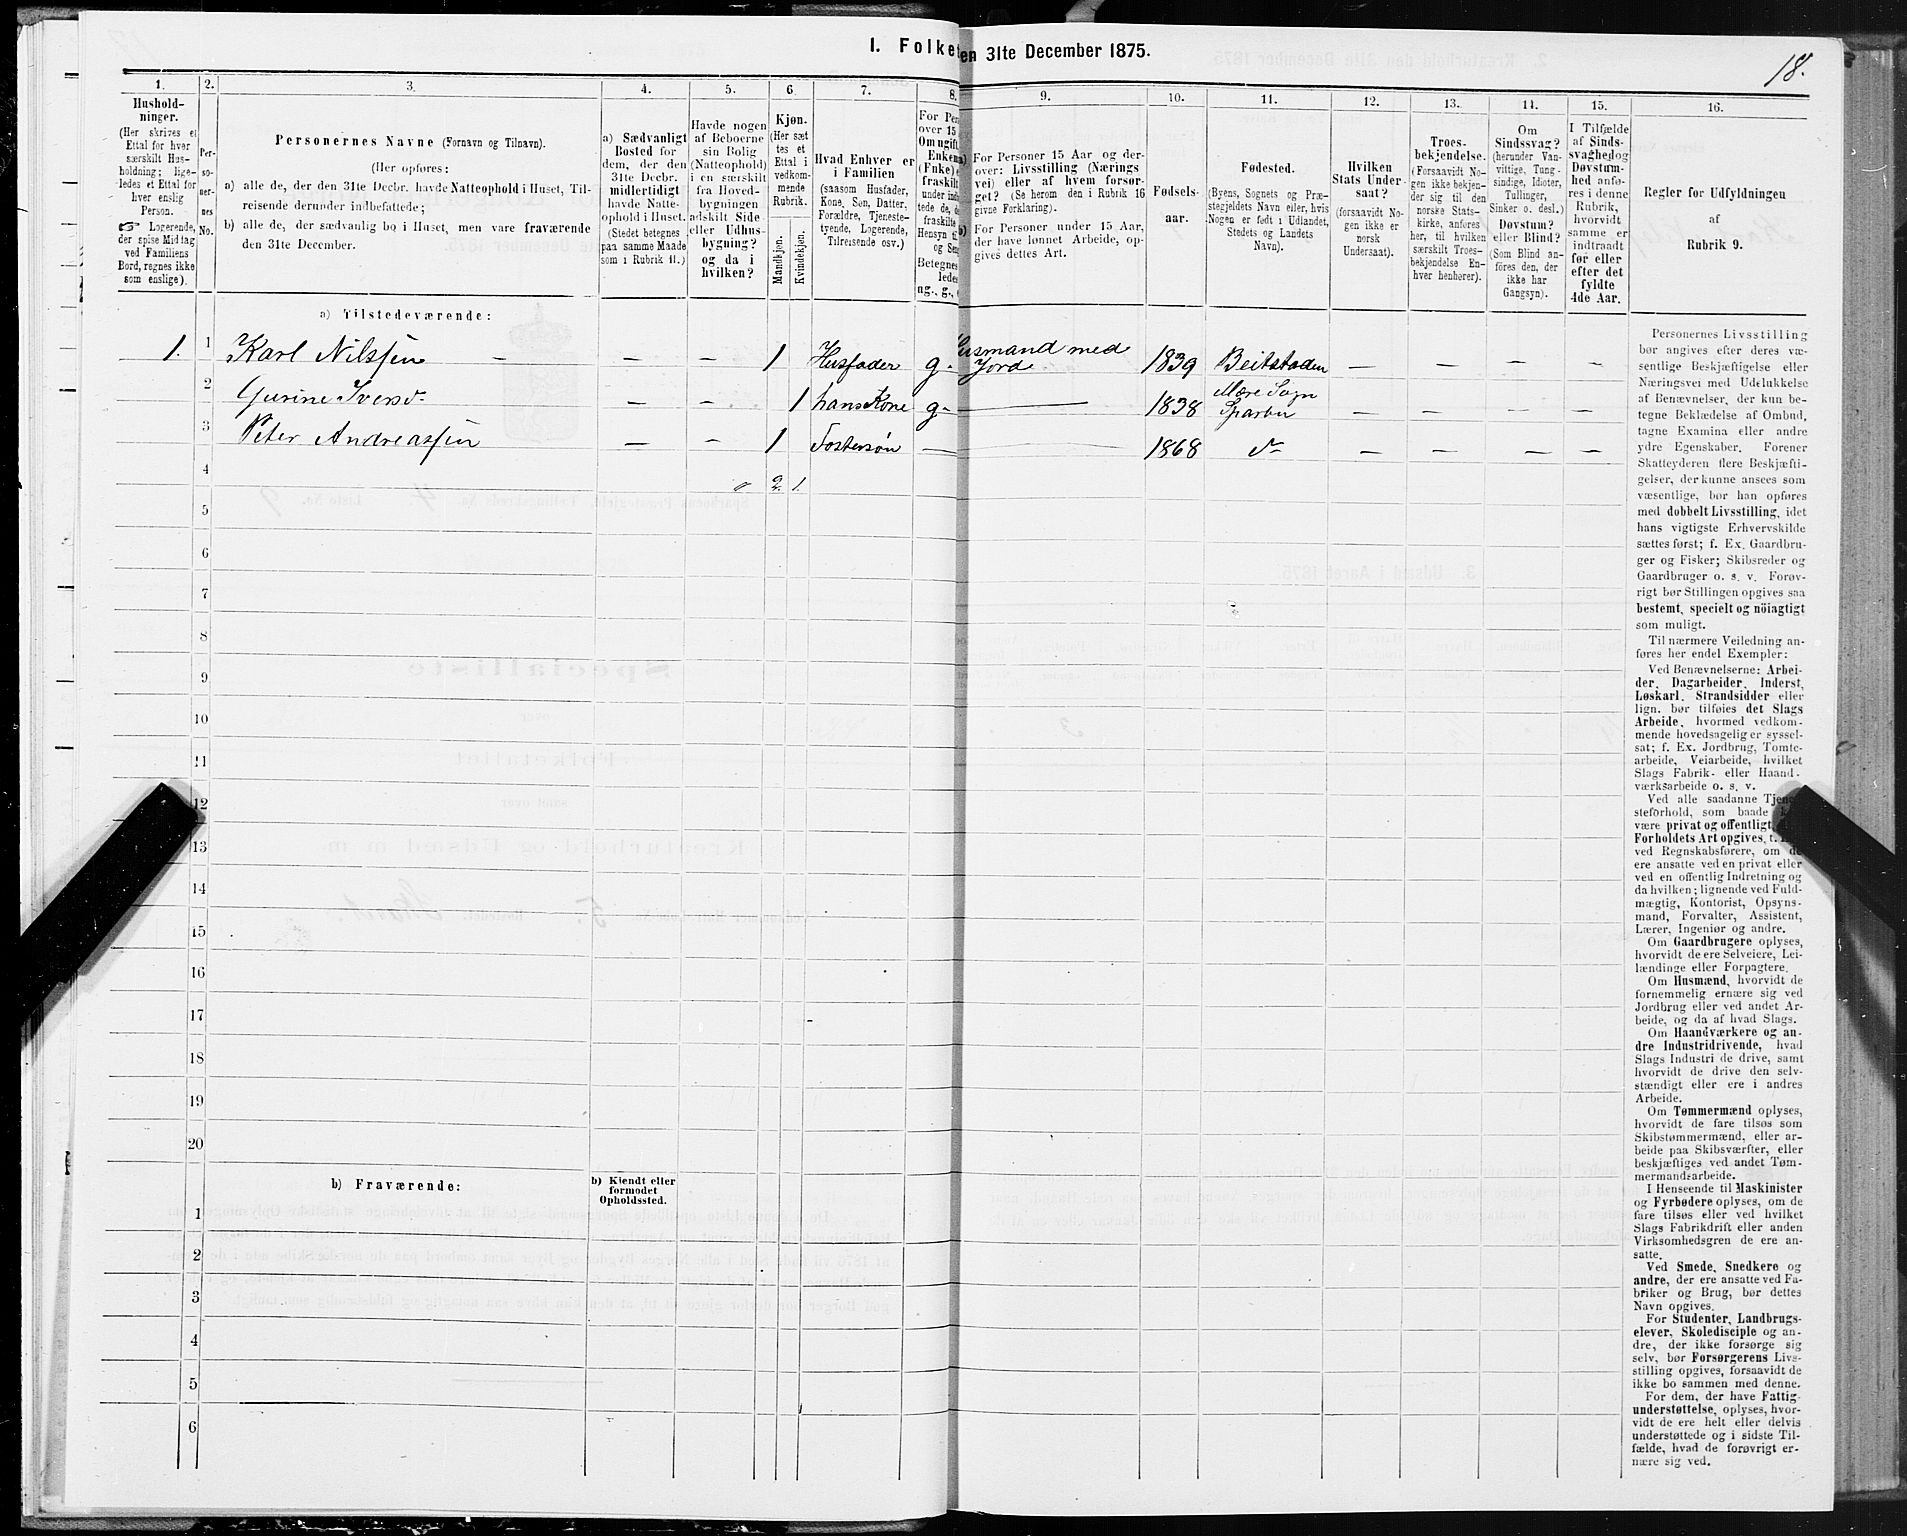 I. Folket
en 31te December 1875.
18.
1.
Hushold-
ninger.
(Her skrives et
Ettal for hver
særskilt Hus-
holdning; lige-
ledes et Ettal for
hver enslig
Person.
Logerende,
der spise Middag
ved Familiens
Bord, regnes ikke
som enslige).
2.
Per-
so-
ner-
nes
No.
3.
Personernes Navne (Fornavn og Tilnavn).
(Her opføres:
a) alle de, der den 31te Decbr. havde Natteophold i Huset, Til-
reisende derunder indbefattede;
b) alle de, der sædvanlig bo i Huset, men vare fraværende
den 31te December.
4.
a) Sædvanligt
Bosted for
dem, der den
31te Decbr.
midlertidigt
havde Natte-
ophold i Huset.
(Stedet betegnes
paa samme Maade
som i Rubrik 11.)
5.
Havde nogen
af Beboerne
sin Bolig
(Natteophold)
i en særskilt
fra Hoved-
bygningen
adskilt Side-
eller Udhus-
bygning?
og da i
hvilken?
6.
Kjøn.
(Her sæt
tes et
Ettal i
vedkom-
mende
Rubrik.
Mandkjøn.
Kvindekjøn.
7.
Hvad Enhver er
i Familien
(saasom Husfader,
Kone, Søn, Datter,
Forældre, Tjeneste-
tyende, Logerende,
Tilreisende osv.)
8.
For Per
over 15
Om ugift
Enkema
(Fnke) e
fraskilt
under ind
tede de, d
fraskilte
Hensyn ti
og Sen
Betegnes
ledes
ug., g.,
9.
a)
For Personer 15 Aar og der-
over: Livsstilling (Nærings
vei) eller af hvem forsør-
get? (Se herom den i Rubrik 16
givne Forklaring).
b)
For Personer under 15 Aar,
der have lønnet Arbeide, op-
gives dettes Art.
10.
Fødsels-
aar.
11.
Fødested.
(Byens, Sognets og Præ-
stegjeldets Navn eller, hvis
Nogen er født i Udlandet,
Stedets og Landets
Navn).
12.
Hvilken
Stats Under-
saat?
(forsaavidt No-
gen ikke er
norsk
Undersaat).
13.
Troes-
bekjendelse.
(Forsaavidt No-
gen ikke bekjen-
der sig til den
norske Stats-
kirke, anføres
her, til hvilken
særskilt Troes-
bekjendelse En-
hver henhører).
14.
Om
Sindssvag?
(herunder Van-
vittige, Tung-
sindige, Idioter,
Tullinger,
Sinker o. desl.)
Døvstum?
eller Blind?
(Som Blind an-
føres den, der
ikke har
Gangsyn).
15.
I Tilfælde
af Sinds-
svaghed og
Døvstum-
hed anfø-
res i denne
Rubrik,
hvorvidt
samme er
indtraadt
før eller
efter det
fyldte
4de Aar.
16.
Regler for Udfyldningen
af
Rubrik 9.
a) Tilstedeværende:
1. 1 Karl Nilssen — — — 1 Husfader g- Husmand med Jord 1839 Beitstaden — — — —
2 Gurine Iversd. — — 1 hans Kone g- — 1838 Mære Sogn Sparbu — — — —
3 Peter Andreassen — — 1 Fostersøn — — 1868 do — — — —
4 2. 1.
5
6
7
8
9
10
11
12
13
14
15
16
17
18
19
20
b) Fraværende:
b) Kjendt eller
formodet
Opholdssted.
1
2
3
4
5
6
Personernes Livsstilling
bør angives efter deres væ-
sentlige Beskjæftigelse eller
Næringsvei med Udelukkelse
af Benævnelser, der kun be-
tegne Beklædelse af Ombud,
tagne Examina eller andre
ydre Egenskaber. Forener
Skatteyderen flere Beskjæfti-
gelser, der kunne ansees som
væsentlige, bør han opføres
med dobbelt Livsstilling, idet
hans vigtigste Erhvervskilde
sættes først; f. Ex. Gaardbru-
ger og Fisker; Skibsreder og
Gaardbruger o. s. v. Forøv-
rigt bør Stillingen opgives saa
bestemt, specielt og nöiagtigt
som muligt.
Til nærmere Veiledning an-
føres her endel Exempler:
Ved Benævnelserne: Arbei-
der, Dagarbeider, Inderst,
Løskarl, Strandsidder eller
lign. bør tilføies det Slags
Arbeide, hvormed vedkom-
mende hovedsagelig er syssel-
sat; f. Ex. Jordbrug, Tomte-
arbeide, Veiarbeide, hvilket
Slags Fabrik- eller Haand-
værksarbeide o. s. v.
Ved alle saadanne Tjene-
steforhold, som baade k
være privat og offentligt,
Forholdets Art opgives, t.
ved Regnskabsførere, om de
ere ansatte ved en privat eller
ved en offentlig Indretning og
da hvilken; lignende ved Fuld-
mægtig, Kontorist, Opsyns-
mand, Forvalter, Assistent,
Lærer, Ingeniør og andre.
Om Gaardbrugere oplyses,
hvorvidt de ere Selveiere, Lei-
lændinge eller Forpagtere.
Om Husmænd, hvorvidt de
fornemmelig ernære sig ved
Jordbrug eller ved andet Ar-
beide, og da af hvad Slags.
Om Haandværkere og an-
dre Industridrivende, hvad
Slags Industri de drive, samt
hvorvidt de drive den selv-
stændigt eller ere i andres
Arbeide.
Om Tømmermænd oplyses,
hvorvidt de fare tilsøs som
Skibstømmermænd, eller ar-
beide paa Skibsværfter, eller
beskjæftiges ved andet Tøm-
mermandsarbeide.
I Henseende til Maskinister
og Fyrbødere oplyses, om de
fare tilsøs eller ved hvilket
Slags Fabrikdrift eller anden
Virksomhedsgren de ere an-
satte.
Ved Smede, Snedkere og
andre, der ere ansatte ved Fa-
briker og Brug, bør dettes
Navn opgives.
For Studenter, Landbrugs-
elever, Skoledisciple og an-
dre, der ikke forsørge sig
selv, bør Forsørgerens Livs-
stilling opgives, forsaavidt de
ikke bo sammen med denne.
For dem, der have Fattig-
understøttelse, oplyses, hvor-
vidt de ere helt eller delvis
understøttede og i sidste Til-
fælde, hvad de forøvrigt er-
nære sig ved.